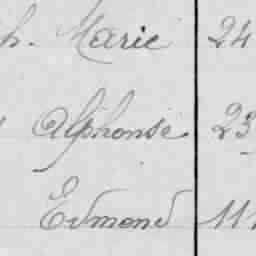 h. Marie 24
Alphonse 23
Edmond 11